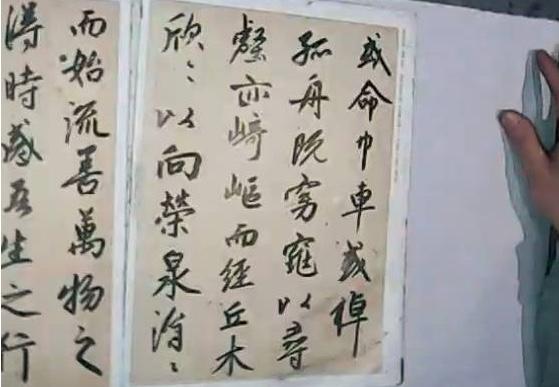 或命巾車或棹
孤舟既窈窕以尋
壑亦崎嶇而經丘木
欣〻以向榮泉涓〻
而始流善萬物之
得時感吾生之行